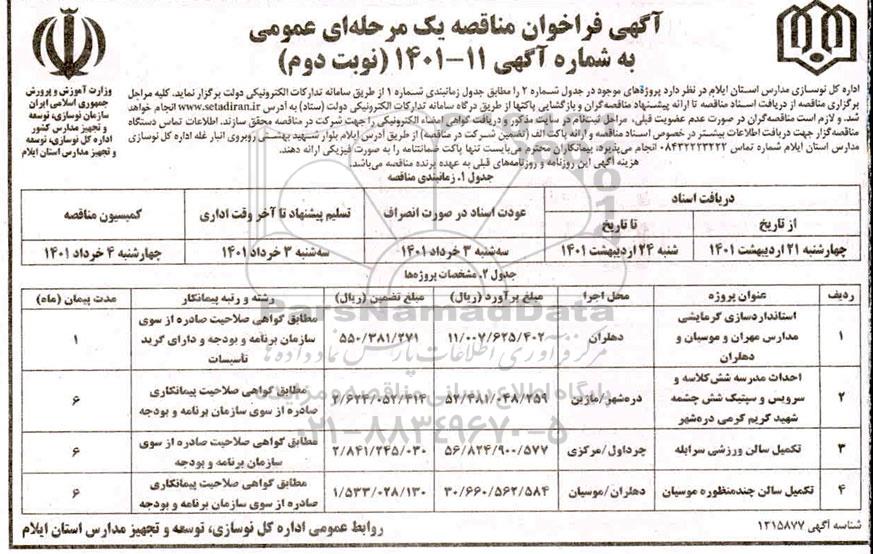 آگهی فراخوان مناقصه یک مرحله‌ای عمومی
به شماره آگهی ۱۱-۱۴۰۱ (نوبت دوم)
وزارت آموزش و پرورش
جمهوری اسلامی ایران
سازمان نوسازی، توسعه
و تجهیز مدارس کشور
اداره کل نوسازی، توسعه
و تجهیز مدارس استان ایلام
اداره کل نوسازی مدارس استان ایلام در نظر دارد پروژه‌های موجود در جدول شماره ۲ را مطابق جدول زمانبندی شماره ۱ از طریق سامانه تدارکات الکترونیکی دولت برگزار نماید. کلیه مراحل
برگزاری مناقصه از دریافت اسناد مناقصه تا ارائه پیشنهاد مناقصه‌گران و بازگشایی پاکتها از طریق درگاه سامانه تدارکات الکترونیکی دولت (ستاد) به آدرس www.setadiran.ir انجام خواهد
شد. و لازم است مناقصه‌گران در صورت عدم عضویت قبلی، مراحل ثبت‌نام در سایت مذکور و دریافت گواهی امضاء الکترونیکی را جهت شرکت در مناقصه محقق سازند. اطلاعات تماس دستگاه
مناقصه‌گزار جهت دریافت اطلاعات بیشتر در خصوص اسناد مناقصه و ارائه پاکت الف (تضمین شرکت در مناقصه) از طریق آدرس ایلام بلوار شهید بهشتی روبروی انبار غله اداره کل نوسازی
مدارس استان ایلام شماره تماس ۰۸۴۳۲۲۲۳۲۲۲ انجام می‌پذیرد. پیمانکاران محترم می‌بایست تنها پاکت ضمانتنامه را به صورت فیزیکی ارائه دهند.
هزینه آگهی این روزنامه و روزنامه‌های قبلی به عهده برنده مناقصه می‌باشد.
جدول ۱. زمانبندی مناقصه
دریافت اسناد
عودت اسناد در صورت انصراف
تسلیم پیشنهاد تا آخر وقت اداری
کمیسیون مناقصه
از تاریخ
تا تاریخ
چهارشنبه ۲۱ اردیبهشت ۱۴۰۱
شنبه ۲۴ اردیبهشت ۱۴۰۱
سه‌شنبه ۳ خرداد ۱۴۰۱
سه‌شنبه ۳ خرداد ۱۴۰۱
چهارشنبه ۴ خرداد ۱۴۰۱
جدول ۲. مشخصات پروژه‌ها
ردیف
عنوان پروژه
محل اجرا
مبلغ برآورد (ریال)
مبلغ تضمین (ریال)
رشته و رتبه پیمانکار
مدت پیمان (ماه)
۱
استانداردسازی گرمایشی
مدارس مهران و موسیان و
دهلران
دهلران
۱۱/۰۰۷/۶۲۵/۴۰۲
۵۵۰/۳۸۱/۲۷۱
مطابق گواهی صلاحیت صادره از سوی
سازمان برنامه و بودجه و دارای گرید
تاسیسات
۱
۲
احداث مدرسه شش کلاسه و
سرویس و سپتیک شش چشمه
شهید کریم کرمی دره‌شهر
دره‌شهر/ماژین
۵۲/۴۸۱/۰۴۸/۲۵۹
۲/۶۲۴/۰۵۲/۴۱۴
مطابق گواهی صلاحیت پیمانکاری
صادره از سوی سازمان برنامه و بودجه
۶
۳
تکمیل سالن ورزشی سرابله
چرداول/مرکزی
۵۶/۸۲۴/۹۰۰/۵۷۷
۲/۸۴۱/۲۴۵/۰۳۰
مطابق گواهی صلاحیت صادره از سوی
سازمان برنامه و بودجه
۶
۴
تکمیل سالن چندمنظوره موسیان
دهلران/موسیان
۳۰/۶۶۰/۵۶۲/۵۸۴
۱/۵۳۳/۰۲۸/۱۳۰
مطابق گواهی صلاحیت پیمانکاری
صادره از سوی سازمان برنامه و بودجه
۶
ParsNamadData
مرکز فرآوری اطلاعات پارس نماد داده‌ها
پایگاه اطلاع رسانی مناقصه و مزایده
۰۲۱-۸۸۳۴۹۶۷۰-۵
شناسه آگهی ۱۳۱۵۸۷۷
روابط عمومی اداره کل نوسازی، توسعه و تجهیز مدارس استان ایلام